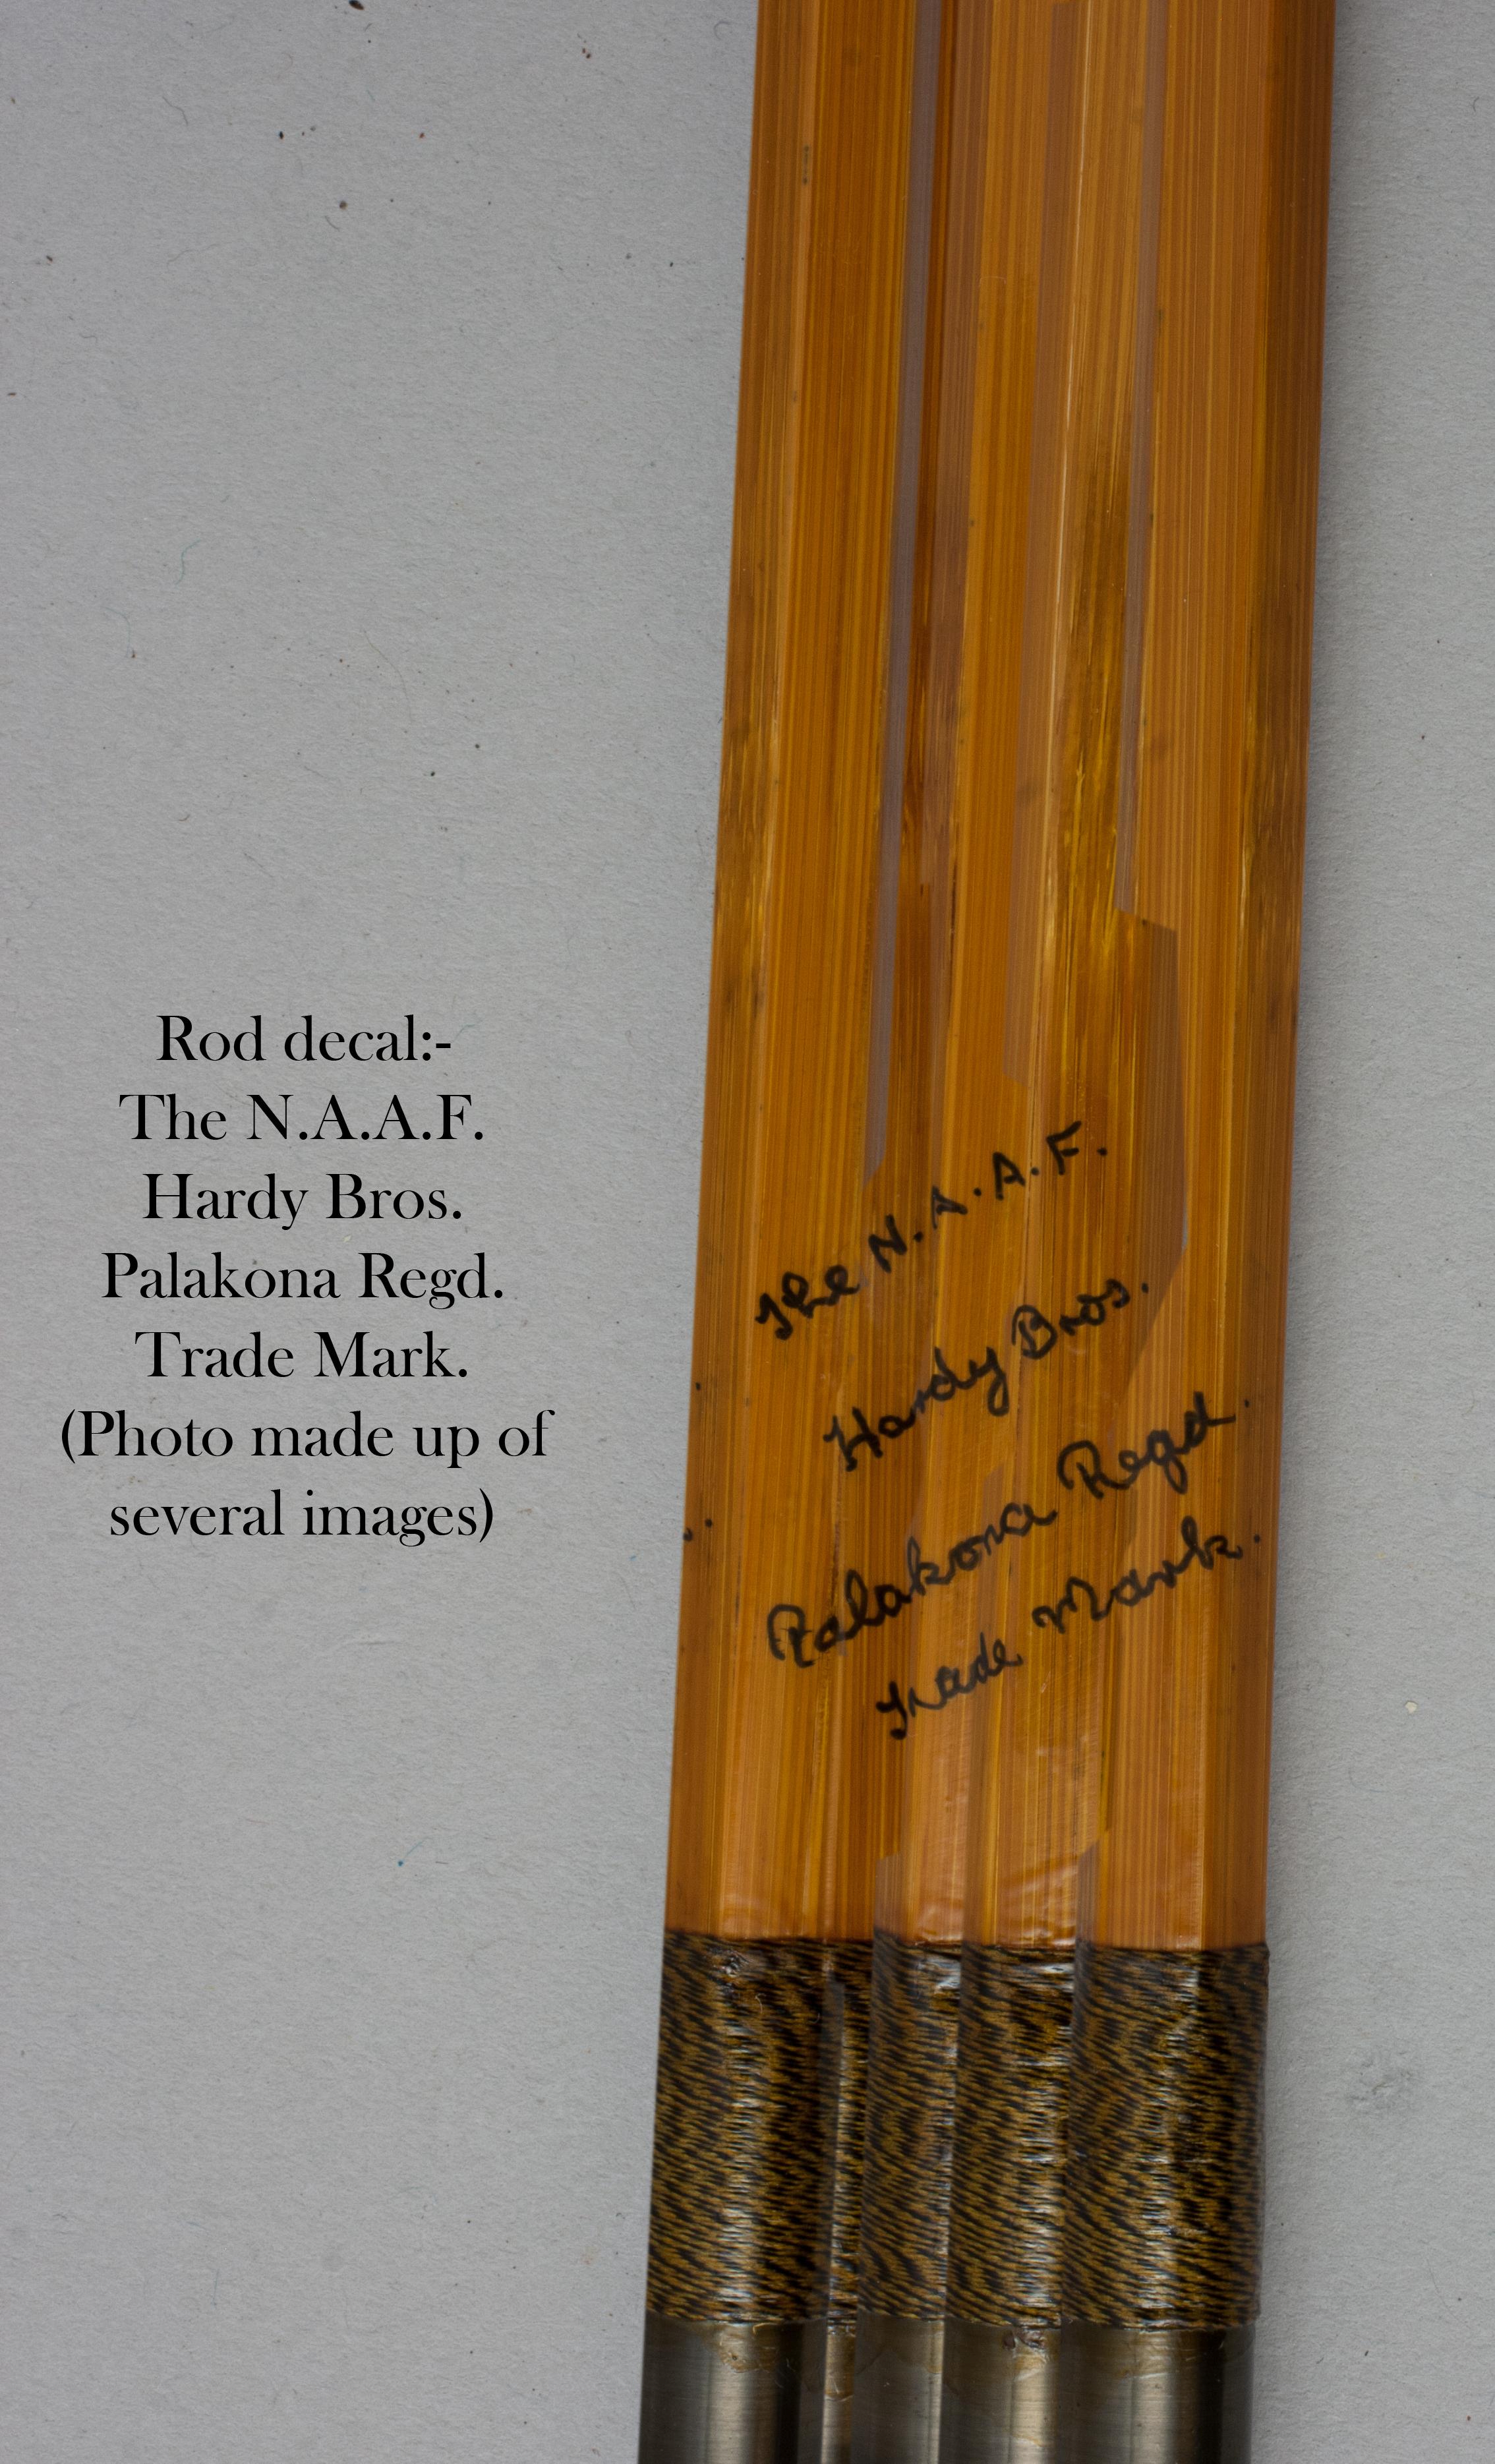 Rod decal:-
The N.A.A.F.
Hardy Bros.
Palakona Regd.
Trade Mark.
(Photo made up of
several images)
The N.A.A.F.
Hardy Bros.
Palakona Regd.
Trade Mark.